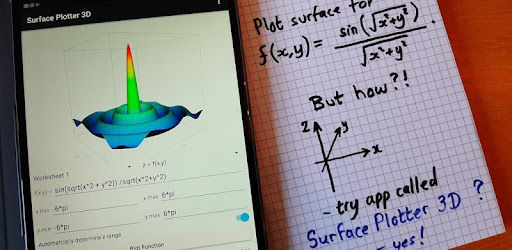 Surface Plotter 3D
Worksheet 1
z = f(x,y)
f(x,y) = sin(sqrt(x^2 + y^2)) /sqrt(x^2+y^2)
x min -6*pi
x max 6*pi
y min -6*pi
y max 6*pi
Automatically determine z range
Plot Function
Plot surface for
f(x,y) = sin(√x²+y²) / √x²+y²
But how?!
z y
x
- try app called
Surface Plotter 3D ?
- yes!